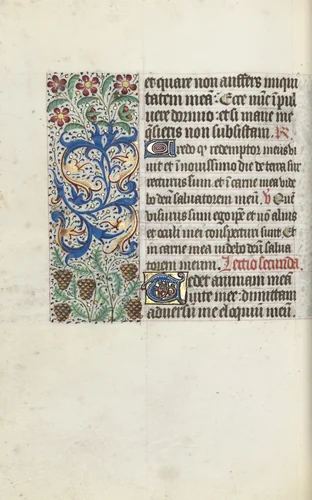 et quare non auffers iniqui
tatem meā: Ecce nūc in pul
uere dormio: et si mane me
q̄sieris non subsistam. R
Credo qꝫ redemptor meus vi
uit et in nouissimo die de terra sur
recturus sum et in carne mea vide
bo deū saluatorem meū. V Quē
visurus sum ego ipse et nō alius
et oculi mei conspecturi sunt Et
in carne mea videbo deū salua
torem meum. Lectio secunda.
Tedet animam meā
uite mee: dimittam
aduersū me eloquiū meū.